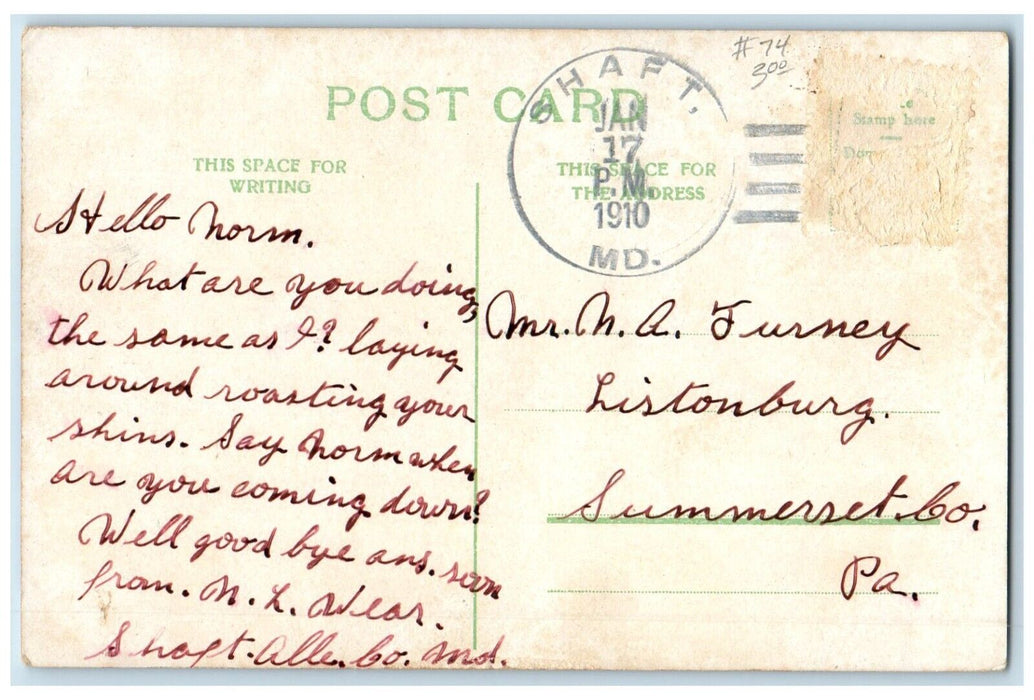 #74
300
POST CARD
SHAFT,
JAN
17
P.M.
1910
MD.
Stamp here
THIS SPACE FOR
WRITING
THIS SPACE FOR
THE ADDRESS
Hello Norm.
What are you doing,
the same as I? laying
around roasting your
shins. Say Norm when
are you coming down?
Well good bye ans. soon
from. N. L. Wear.
Shaft. Alle. Co. Md.
Mr. N. A. Turney
Listonburg.
Summerset. Co.
Pa.